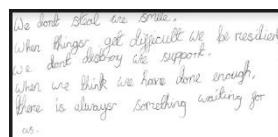 We dont steal we smile.
When things get difficult we be resilient
we dont destroy we support.
when we think we have done enough,
there is always something waiting for
us.